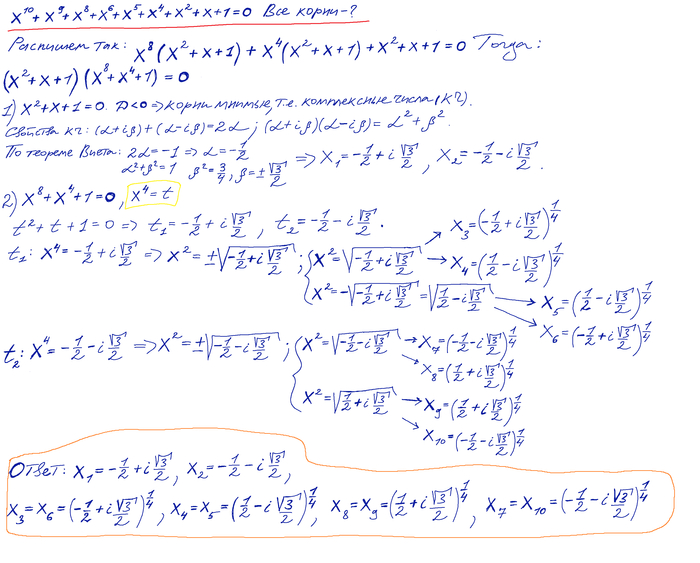 x¹⁰+x⁹+x⁸+x⁶+x⁵+x⁴+x²+x+1=0 Все корни-?
Распишем так: x⁸(x²+x+1)+x⁴(x²+x+1)+x²+x+1=0 Тогда:
(x²+x+1)(x⁸+x⁴+1)=0
1) x²+x+1=0. D<0 => корни мнимые, т.е. комплексные числа (КЧ).
Свойства кч: (α+iβ)+(α-iβ)=2α; (α+iβ)(α-iβ)=α²+β².
По теореме Виета: 2α=-1 => α=-1/2
α²+β²=1 β²=3/4, β=±√3/2 => x₁=-1/2+i√3/2, x₂=-1/2-i√3/2.
2) x⁸+x⁴+1=0, x⁴=t
t²+t+1=0 => t₁=-1/2+i√3/2, t₂=-1/2-i√3/2.
t₁: x⁴=-1/2+i√3/2 => x²=±√(-1/2+i√3/2); { x²=√(-1/2+i√3/2) → x₃=(-1/2+i√3/2)^1/4
→ x₄=(1/2-i√3/2)^1/4
x²=-√(-1/2+i√3/2)=√(1/2-i√3/2) → x₅=(1/2-i√3/2)^1/4
→ x₆=(-1/2+i√3/2)^1/4
t₂: x⁴=-1/2-i√3/2 => x²=±√(-1/2-i√3/2); { x²=√(-1/2-i√3/2) → x₇=(-1/2-i√3/2)^1/4
→ x₈=(1/2+i√3/2)^1/4
x²=√(1/2+i√3/2) → x₉=(1/2+i√3/2)^1/4
→ x₁₀=(-1/2-i√3/2)^1/4
Ответ: x₁=-1/2+i√3/2, x₂=-1/2-i√3/2,
x₃=x₆=(-1/2+i√3/2)^1/4, x₄=x₅=(1/2-i√3/2)^1/4, x₈=x₉=(1/2+i√3/2)^1/4, x₇=x₁₀=(-1/2-i√3/2)^1/4